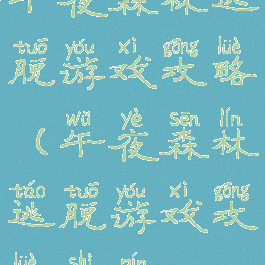 午夜森林逃
tuō yóu xì gōng lüè
脱游戏攻略
wǔ yè sēn lín
（午夜森林
táo tuō yóu xì gōng
逃脱游戏攻
lüè shì pín